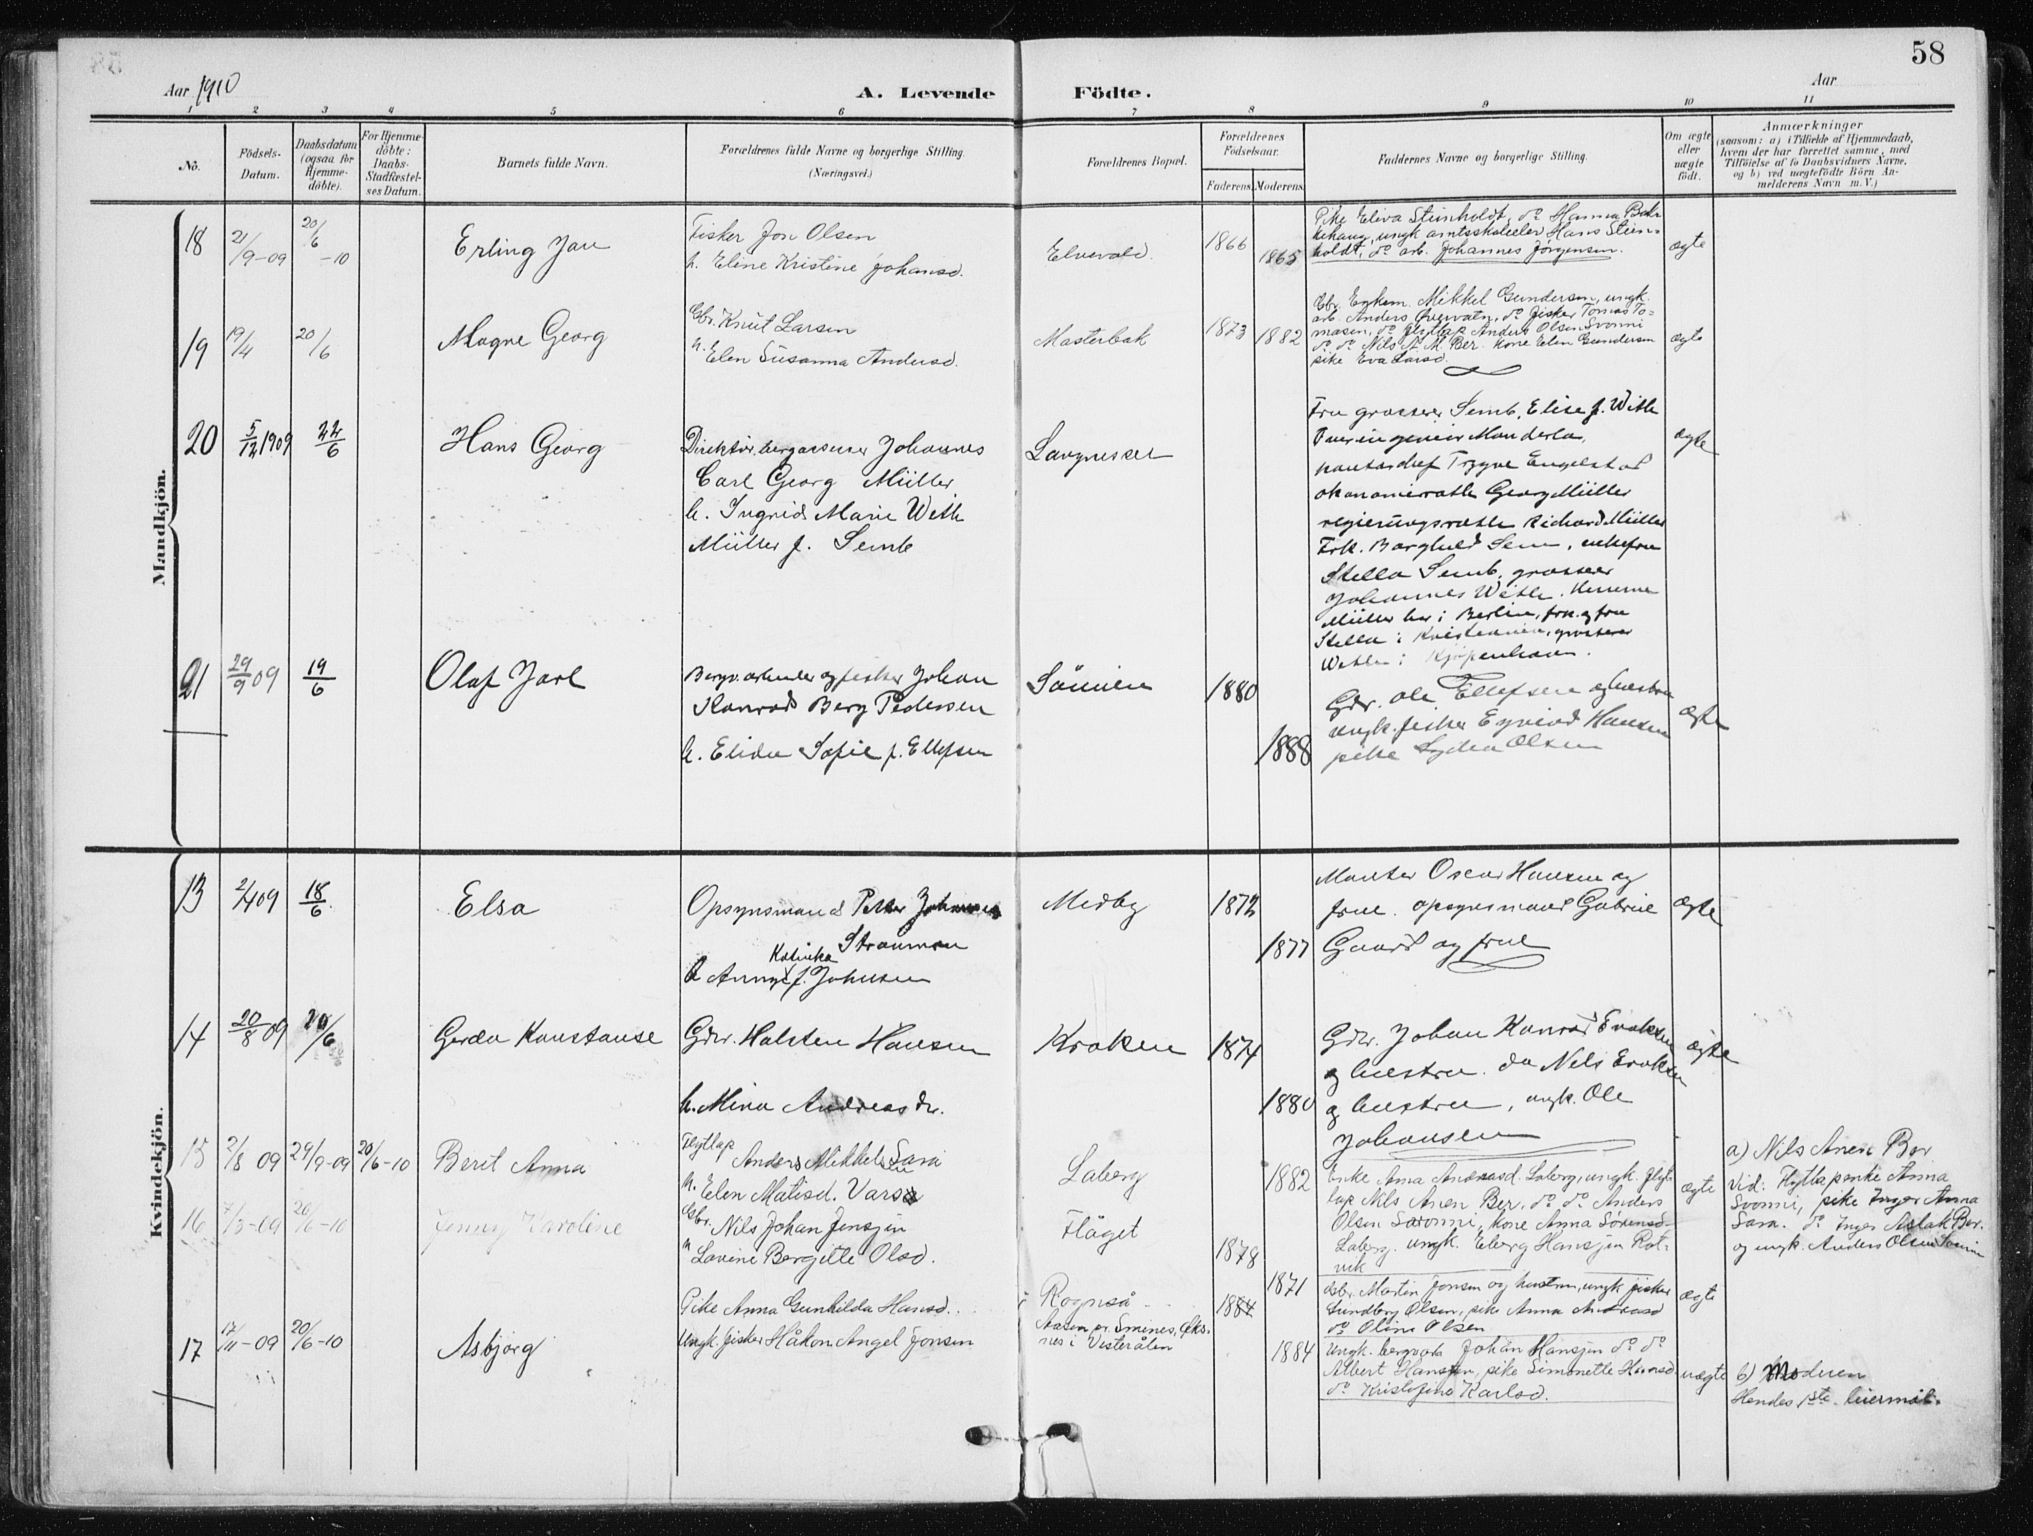 58
Aar 1910
A. Levende Födte.
Aar
1 2 3 4 5 6 7 8 9 10 11
No.
Födsels-
Datum.
Daabsdatum
(ogsaa for
Hjemme-
döbte).
For Hjemme-
döbte:
Daabs-
Stadfæstel-
ses Datum.
Barnets fulde Navn.
Forældrenes fulde Navne og borgerlige Stilling.
(Næringsvei.)
Forældrenes Bopæl.
Forældrenes
Födselsaar.
Faderens. Moderens.
Faddernes Navne og borgerlige Stilling.
Om ægte
eller
uægte
født.
Anmærkninger
(saasom: a) i Tilfælde af Hjemmedaab,
hvem der har forrettet samme, med
Tilföielse af to Daabsvidners Navne,
og b) ved uægtefödte Börn An-
melderens Navn m. V.)
Mandkjön.
18
21/9-09
20/6-10
Erling Jan
Fisker Jon Olsen
h. Eline Kristine Johansd.
Elvevold.
1866
1865
Pike Eliva Steinholdt, do Hanna
ungk amtsskoleelev Hans Stein-
holdt, do arb. Johannes Jørgensen.
ægte
19
19/4
20/6
Magne Georg
Gbr. Knut Larsen
h. Elen Susanna Andersd.
Masterbak
1873
1882
Gbr. Enkem. Mikkel Gundersen, ungk.
arb. Anders do fisker Tomas To-
masen, do flytlap Anders Olsen Svonni
do do Nils N. M. Ber. Kone Elen Gundersen
pike Eva Larsd.
ægte
20
5/12 1909
22/6
Hans Georg
Direktør, bergassessor Johannes
Carl Georg Müller
h. Ingrid Marie Weth
Müller f. Semb
Lavgnesset
Fru grosserer Semb, Elise f. Weth
Overingeniør
Trygve Engelstad
økonomierath Georg Müller
regierungsrath Richard Müller
Frk. Borghild Sem, enkefru
Stella Semb, grosserer
Johannes Weth. Herrerne
Müller bor i Berlin, fru og fru
Stella i Kristiania, grosserer
Weth i Kjøpenhavn.
ægte
21
29/9 09
19/6
Olaf Jarl
Bergv. arbeider og fisker Johan
Konrad Berg Pedersen
h. Elida Sofie f. Ellefsen
Sörmien
1880
1888
Gbr. Ole Ellefsen og hustru
ungk. fisker Eyvind Hansen
pike Lydia Olsen
ægte
Kvindekjön.
13
2/4 09
18/6
Elsa
Opsynsmand Petter Johannes
Straumen
Katinka
h Anna f. Johnsen
Medby
1872
1877
Montør Oscar Hansen og
frue. opsynsmand Gabriel
Gaard og frue
ægte
14
20/8 09
20/6
Gerda Konstanse
Gbr. Halsten Hansen
h. Mina Andreas dr.
Kroken
1874
1880
Gbr. Johan Konrad Eraksen
og hustru. do Nils Eraksen
og hustru, ungk. Ole
Johansen
ægte
15
2/8 09
29/9-09
20/6-10
Berit Anna
Flytlap
Anders Mikkelsen Sara
h. Elen Matisd. Vars
Laberg
1882
Enke Anna Andreasd. Laberg, ungk. flyt-
lap Nils Anen Ber. do do Anders
Olsen Svonni, kone Anna Sörensd.
Laberg. ungk. Elberg Hansjen Rot-
vik
ægte
a) Nils Anen Ber
Vid: Flytlapenke Anna
Svonni, pike Inger Anna
Sara. do Inger Aslak Ber.
og ungk. Anders Olsen Svonni
16
7/3-09
20/6-10
Jenny Karoline
Gbr. Nils Johan Jensjen
h Lovine Bergitte Olsd.
Flåget
1878
1871
Gbr. Martin Jonsen og hustru, ungk fisker
Lundberg Olsen, pike Anna Andreasd
do Oline Olsen
ægte
17
17/11-09
20/6-10
Asbjörg
Pike Anna Gunhilda Hansd.
Ungk. fisker Håkon Angel Jonsen
Rognså
Aasen pr. Smines, Øks-
nes i Vesterålen
1884
1884
Ungk. bergvarb Johan Hansjen do do
Albert Hansen, pike Simonette Hansd.
do Kristofine Karlsd.
uægte
b) Moderen
Hendes 1ste leiermål.